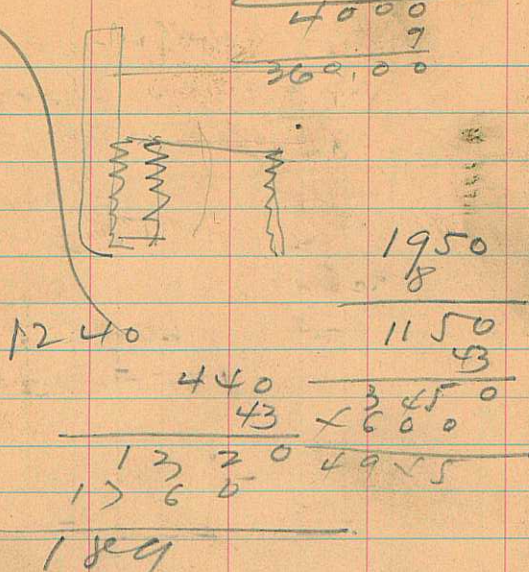 4000
9
360,00
1950
8
1240
1150
43
440
43
3450
4600
1320
4945
1760
189